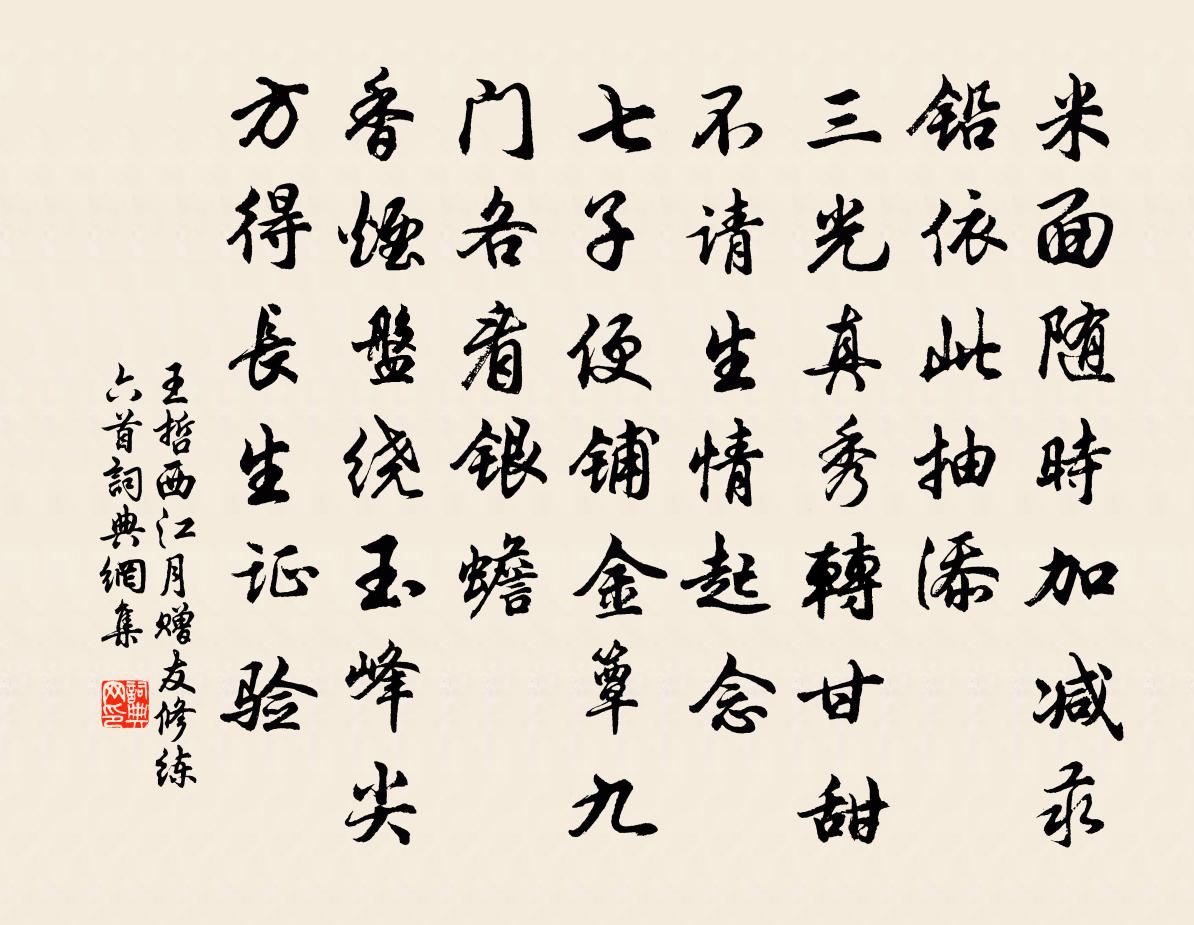 米面随時加减汞
铅依此抽添
三光真秀轉甘甜
不请生情起念
七子便铺金簟九
门各看银蟾
香煙盤绕玉峰尖
方得長生证验
王哲西江月赠友修练
六首詞典網集
詞典
网印